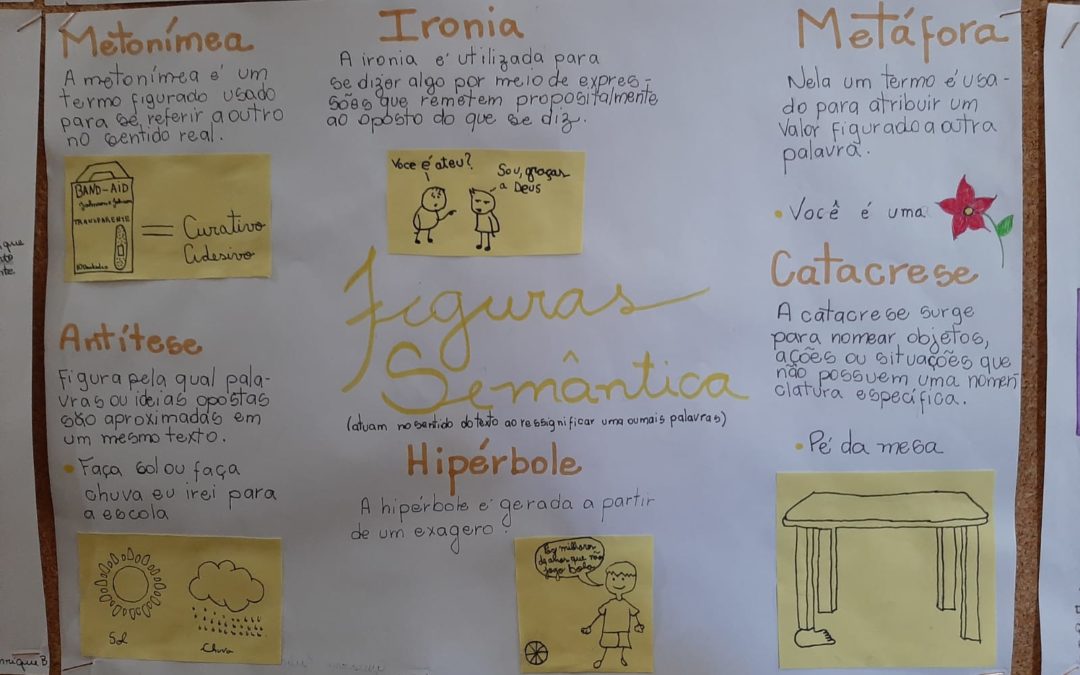 Metonímea
A metonímea é um
termo figurado usado
para se referir a outro
no sentido real.
BAND-AID
Johnson & Johnson
TRANSPARENTE
= Curativo
Adesivo
Antítese
Figura pela qual pala-
vras ou ideias opostas
são aproximadas em
um mesmo texto.
• Faça sol ou faça
chuva eu irei para
a escola
Sol
Chuva
Ironia
A ironia é utilizada para
se dizer algo por meio de expres-
sões que remetem propositalmente
ao oposto do que se diz.
Você é ateu?
Sou, graças
a Deus
Figuras
Semântica
(atuam no sentido do texto ao ressignificar uma ou mais palavras)
Hipérbole
A hipérbole é gerada a partir
de um exagero.
Faz milhares
de anos que não
jogo bola
Metáfora
Nela um termo é usa-
do para atribuir um
valor figurado a outra
palavra.
• Você é uma
Catacrese
A catacrese surge
para nomear objetos,
ações ou situações que
não possuem uma nomen-
clatura específica.
• Pé da mesa
que
nte.
nrique B